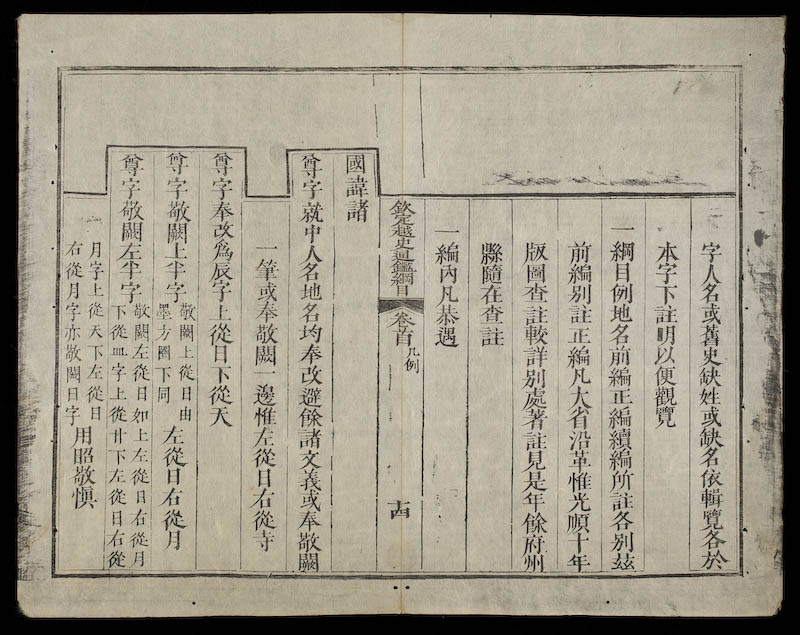 字人名或舊史缺姓或缺名依輯覽各於
本字下註明以便觀覽
一綱目例地名前編正編續編所註各別玆
前編別註正編凡大省沿革惟光順十年
版圖查註較詳別處著註見是年餘府州
縣隨在查註
一編內凡恭遇
欽定越史通鑑綱目 卷首 凡例 十四
國諱諸
尊字就中人名地名均奉改避餘諸文義或奉敬闕
一筆或奉敬闕一邊惟左從日右從寺
尊字奉改爲辰字上從日下從天
尊字敬闕上半字 敬闕上從日由
墨方圈下同 左從日右從月
尊字敬闕左半字 敬闕左從日如上左從日右從月
下從皿字上從卄下左從日右從
月字上從天下左從日
右從月字亦敬闕日字 用昭敬慎